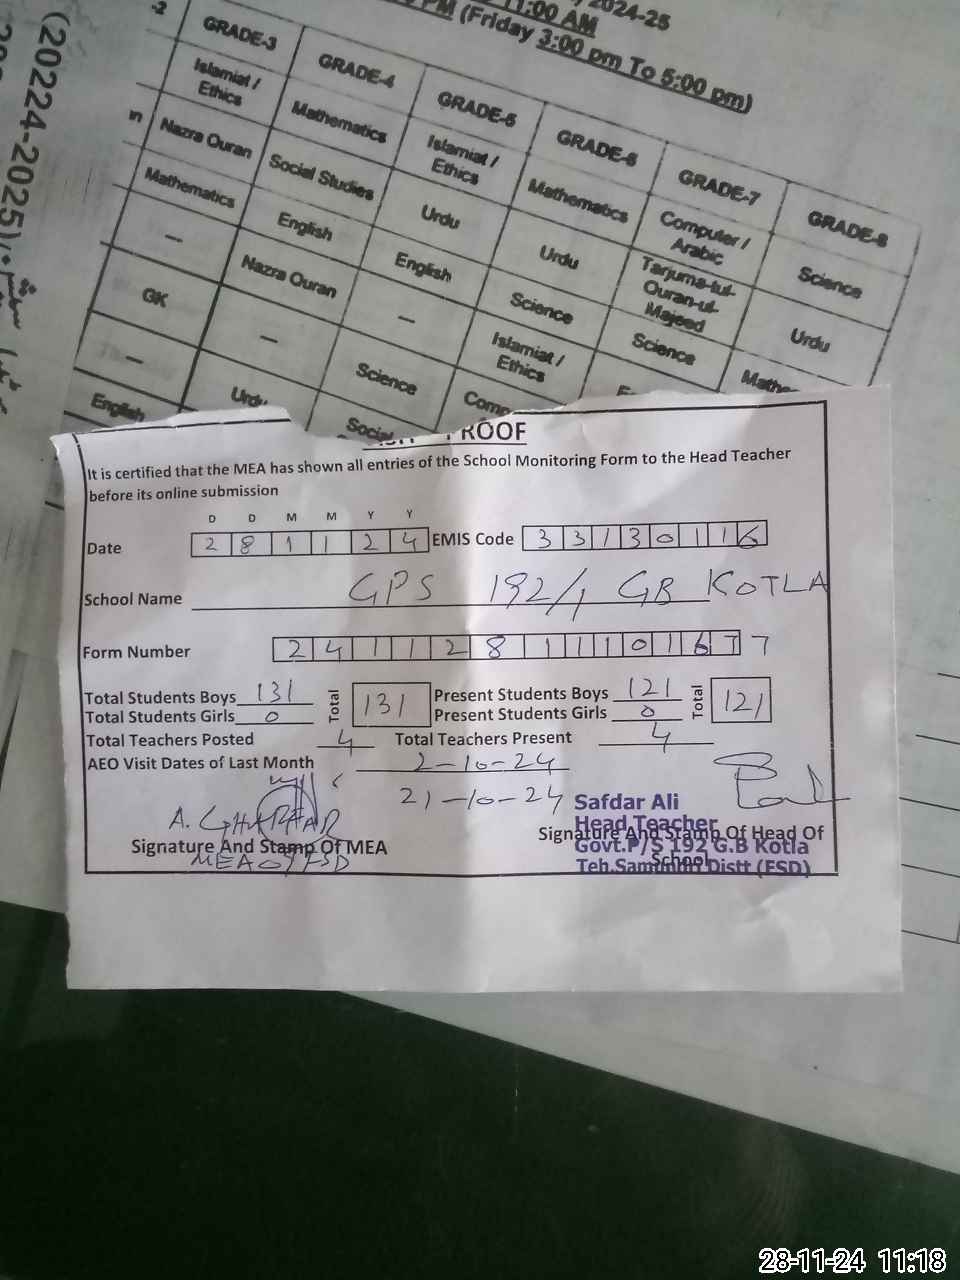 2024-25
11:00 AM
PM (Friday 3:00 pm To 5:00 pm)
-2 GRADE-3 GRADE-4 GRADE-5 GRADE-6 GRADE-7 GRADE-8
Islamiat / Ethics Mathematics Islamiat / Ethics Mathematics Computer / Arabic Science
Nazra Quran Social Studies Urdu Urdu Tarjuma-tul-Quran-ul-Majeed Urdu
Mathematics English English Science Science
— Nazra Quran — Islamiat / Ethics
GK — Science
—
English
(20224-2025)
PROOF
It is certified that the MEA has shown all entries of the School Monitoring Form to the Head Teacher
before its online submission
D D M M Y Y
Date 2 8 1 1 2 4 EMIS Code 3 3 1 3 0 1 1 6
School Name GPS 192/1 GB KOTLA
Form Number 2 4 1 1 2 8 1 1 1 0 1 6 7 7
Total Students Boys 131 Total 131 Present Students Boys 121 Total 121
Total Students Girls 0 Present Students Girls 0
Total Teachers Posted 4 Total Teachers Present 4
AEO Visit Dates of Last Month 2-10-24
21-10-24
A. GHAFFAR
Signature And Stamp Of MEA
Safdar Ali
Head Teacher
Signature And Stamp Of Head Of
Govt.P/S 192 G.B Kotla
School
Teh.Samundri Distt (FSD)
28-11-24 11:18